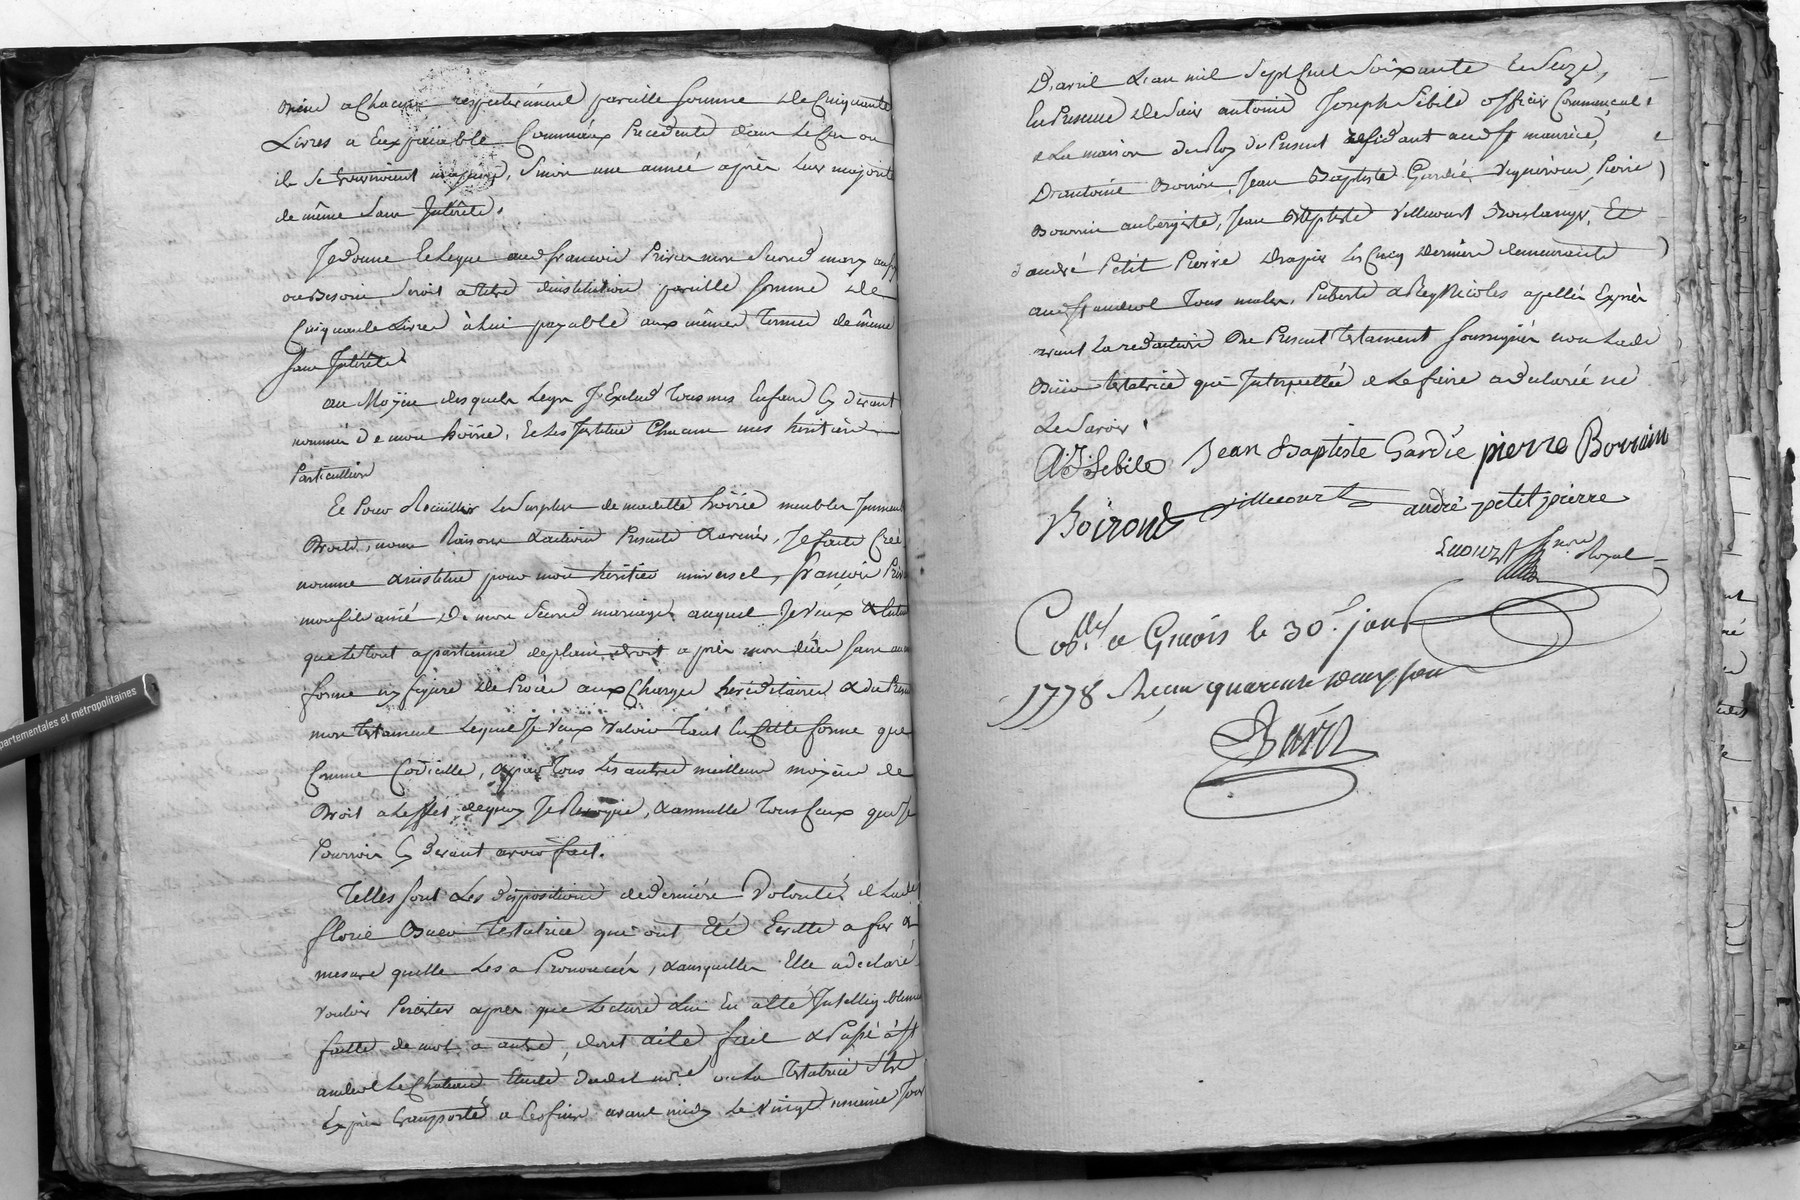 à Chacun respectivement pareille somme de Cinquante
Livres a Eux paiable Comme aux Precedents dans le Cas ou
ils se trouvroient majeurs, Sinon une année après leur majorité
de même sans Intérêts.
Je donne & Legue aud françois mon Second mary au
ou Besoin Seroit à titre d'institution pareille somme de
Cinquante Livres à Lui payable aux mêmes termes de même
sans Intérêts
au Moÿen desquels Legs J'Exclud tous mes Enfans Cy devant
nommés de mon hoirie, & Les Institue Chacun mes heritiers
Particulliers
Et Pour Recüeillir Le Surplus de madette hoirie meubles Immeubles
Droits, noms Raisons & actions Presents & avenirs, Je faits Créé
nomme & institue pour mon heritier universel, françois
mon fils ainé de mon Second mariage auquel Je veux &
que le tout apartienne de plain droit après mon déces sans
forme ny figure de Procès aux Charges hereditaires & du
mon testament Lequel Je veux valoir tant en Cette forme que
Comme Codicille, & par tous Les autres meilleurs moÿens de
Droit a L'effet dequoy Je Revoque, & annulle tous Ceux que Je
Pourrois Cy devant avoir fait.
Telles sont Les dispositions de derniére Volonté de Lade
florie testatrice qui ont Eté Ecritte a fur &
mesure quelle Les a Prononcées, & ausquelles Elle a declaré
vouloir Persister apres que Lecture Lui En a Eté Intelligiblement
faitte de mot a autre, dont acte fait & Passé à St
andeol Le Château Etude dudit nore ou La testatrice s'Est
Exprès transportée a Ces fins avant midy Le vingt unieme Jour
D'avril L'an mil Sept Cent Soixante & Seize,
En Presence de Sieur antoine Joseph Sibile officier Commençal
de La maison du Roy du Present residant aud St maurice,
D'antoine Boiron, Jean Baptiste Gardié Vigneron, Pierre
Bourrin aubergiste, Jean Baptiste Villecourt Boulanger, Et
d'andré Petit Pierre Drapier Les Cinq Derniers demeurants
aud St andeol tous males, Puberts & Regnicoles apellés Exprès
avant La redaction du Present testament soussignés non Lade
testatrice qui Interpellée de Le faire a declarée ne
Le Savoir.
A: J: Sibile Jean Baptiste Gardie pierre Bourrin
Boiron Villecourt andré petit pierre
nre Royal
Coll. a Givors le 30e. janv
1778 Recu quarente deux sou